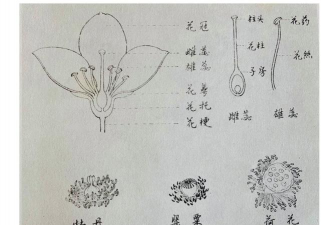 花冠
雌蕊
雄蕊
花萼
花托
花梗
柱头
花柱
子房
雌蕊
花药
花丝
雄蕊
牡丹
罂粟
荷花